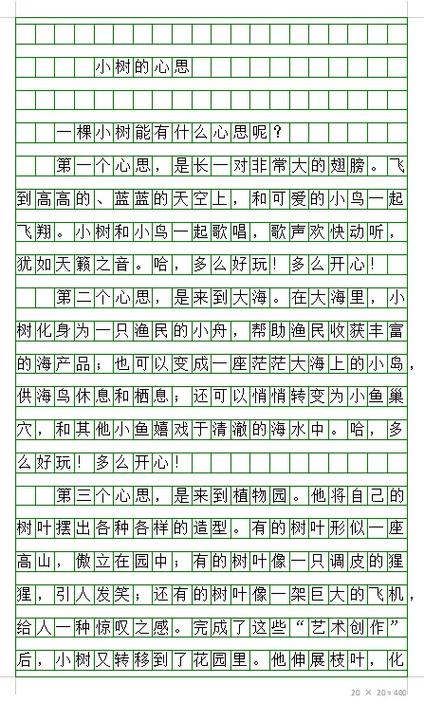 小树的心思
一棵小树能有什么心思呢？
第一个心思，是长一对非常大的翅膀。飞
到高高的、蓝蓝的天空上，和可爱的小鸟一起
飞翔。小树和小鸟一起歌唱，歌声欢快动听，
犹如天籁之音。哈，多么好玩！多么开心！
第二个心思，是来到大海。在大海里，小
树化身为一只渔民的小舟，帮助渔民收获丰富
的海产品；也可以变成一座茫茫大海上的小岛，
供海鸟休息和栖息；还可以悄悄转变为小鱼巢
穴，和其他小鱼嬉戏于清澈的海水中。哈，多
么好玩！多么开心！
第三个心思，是来到植物园。他将自己的
树叶摆出各种各样的造型。有的树叶形似一座
高山，傲立在园中；有的树叶像一只调皮的猩
猩，引人发笑；还有的树叶像一架巨大的飞机，
给人一种惊叹之感。完成了这些“艺术创作”
后，小树又转移到了花园里。他伸展枝叶，化
20 × 20 = 400